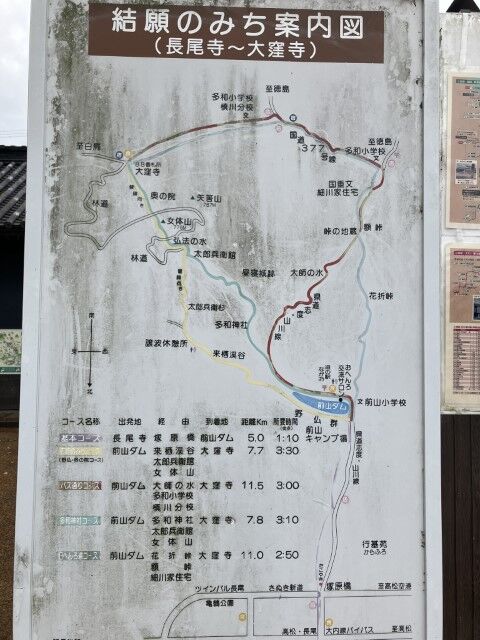 結願のみち案内図
(長尾寺～大窪寺)
至徳島
多和小学校
槙川分校
文
国道377号線
至徳島
多和小学校
文
至白鳥
88番札所
大窪寺
国重文
細川家住宅
奥の院
矢筈山
林道
女体山
峠の地蔵
額峠
弘法の水
林道
太郎兵衛館
昼寝妖跡
大師の水
花折峠
太郎兵衛杉
県道志度山川線
多和神社
譲波休憩所
来栖渓谷
おへんろ
交流サロン
道の駅
ながお
前山ダム
文 前山小学校
野仏群
前山
キャンプ場
県道志度・山川線
南
東
西
北
コース名称 出発地 経由 到着地 距離Km 所要時間
基本コース 長尾寺 塚原橋 前山ダム 5.0 1:10
前山ダム 来栖渓谷 大窪寺 7.7 3:30
太郎兵衛館
女体山
バス通りコース 前山ダム 大師の水 大窪寺 11.5 3:00
多和小学校
槙川分校
多和神社コース 前山ダム 多和神社 大窪寺 7.8 3:10
太郎兵衛館
女体山
へんろ道コース 前山ダム 花折峠 大窪寺 11.0 2:50
額峠
細川家住宅
行基苑
からふろ
塚原橋
ツインパル長尾
さぬき新道
至高松空港
亀鶴公園
高松・長尾
大内線バイパス
至高松